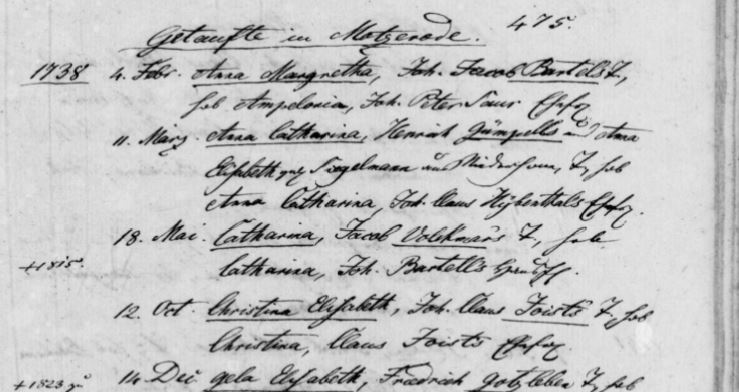 Getaufte in Motzerode. 475.
1738 4. Febr. Anna Margretha, Joh. Jacob Bartels T,
heb Ampelonia, Joh. Peter Saur
11. März Anna Catharina, Henrich Gümpells und Anna
Elisabeth geb Siegelmann aus T, heb
Anna Catharina, Joh. Claus
18. Mai. Catharina, Jacob Volckmars T, heb
+1815. Catharina, Joh. Bartells
12. Oct. Christina Elisabeth, Joh. Claus Foists T, heb
Christina, Claus Foists
+1823 14. Dec. Elisabeth, Friedrich T, heb